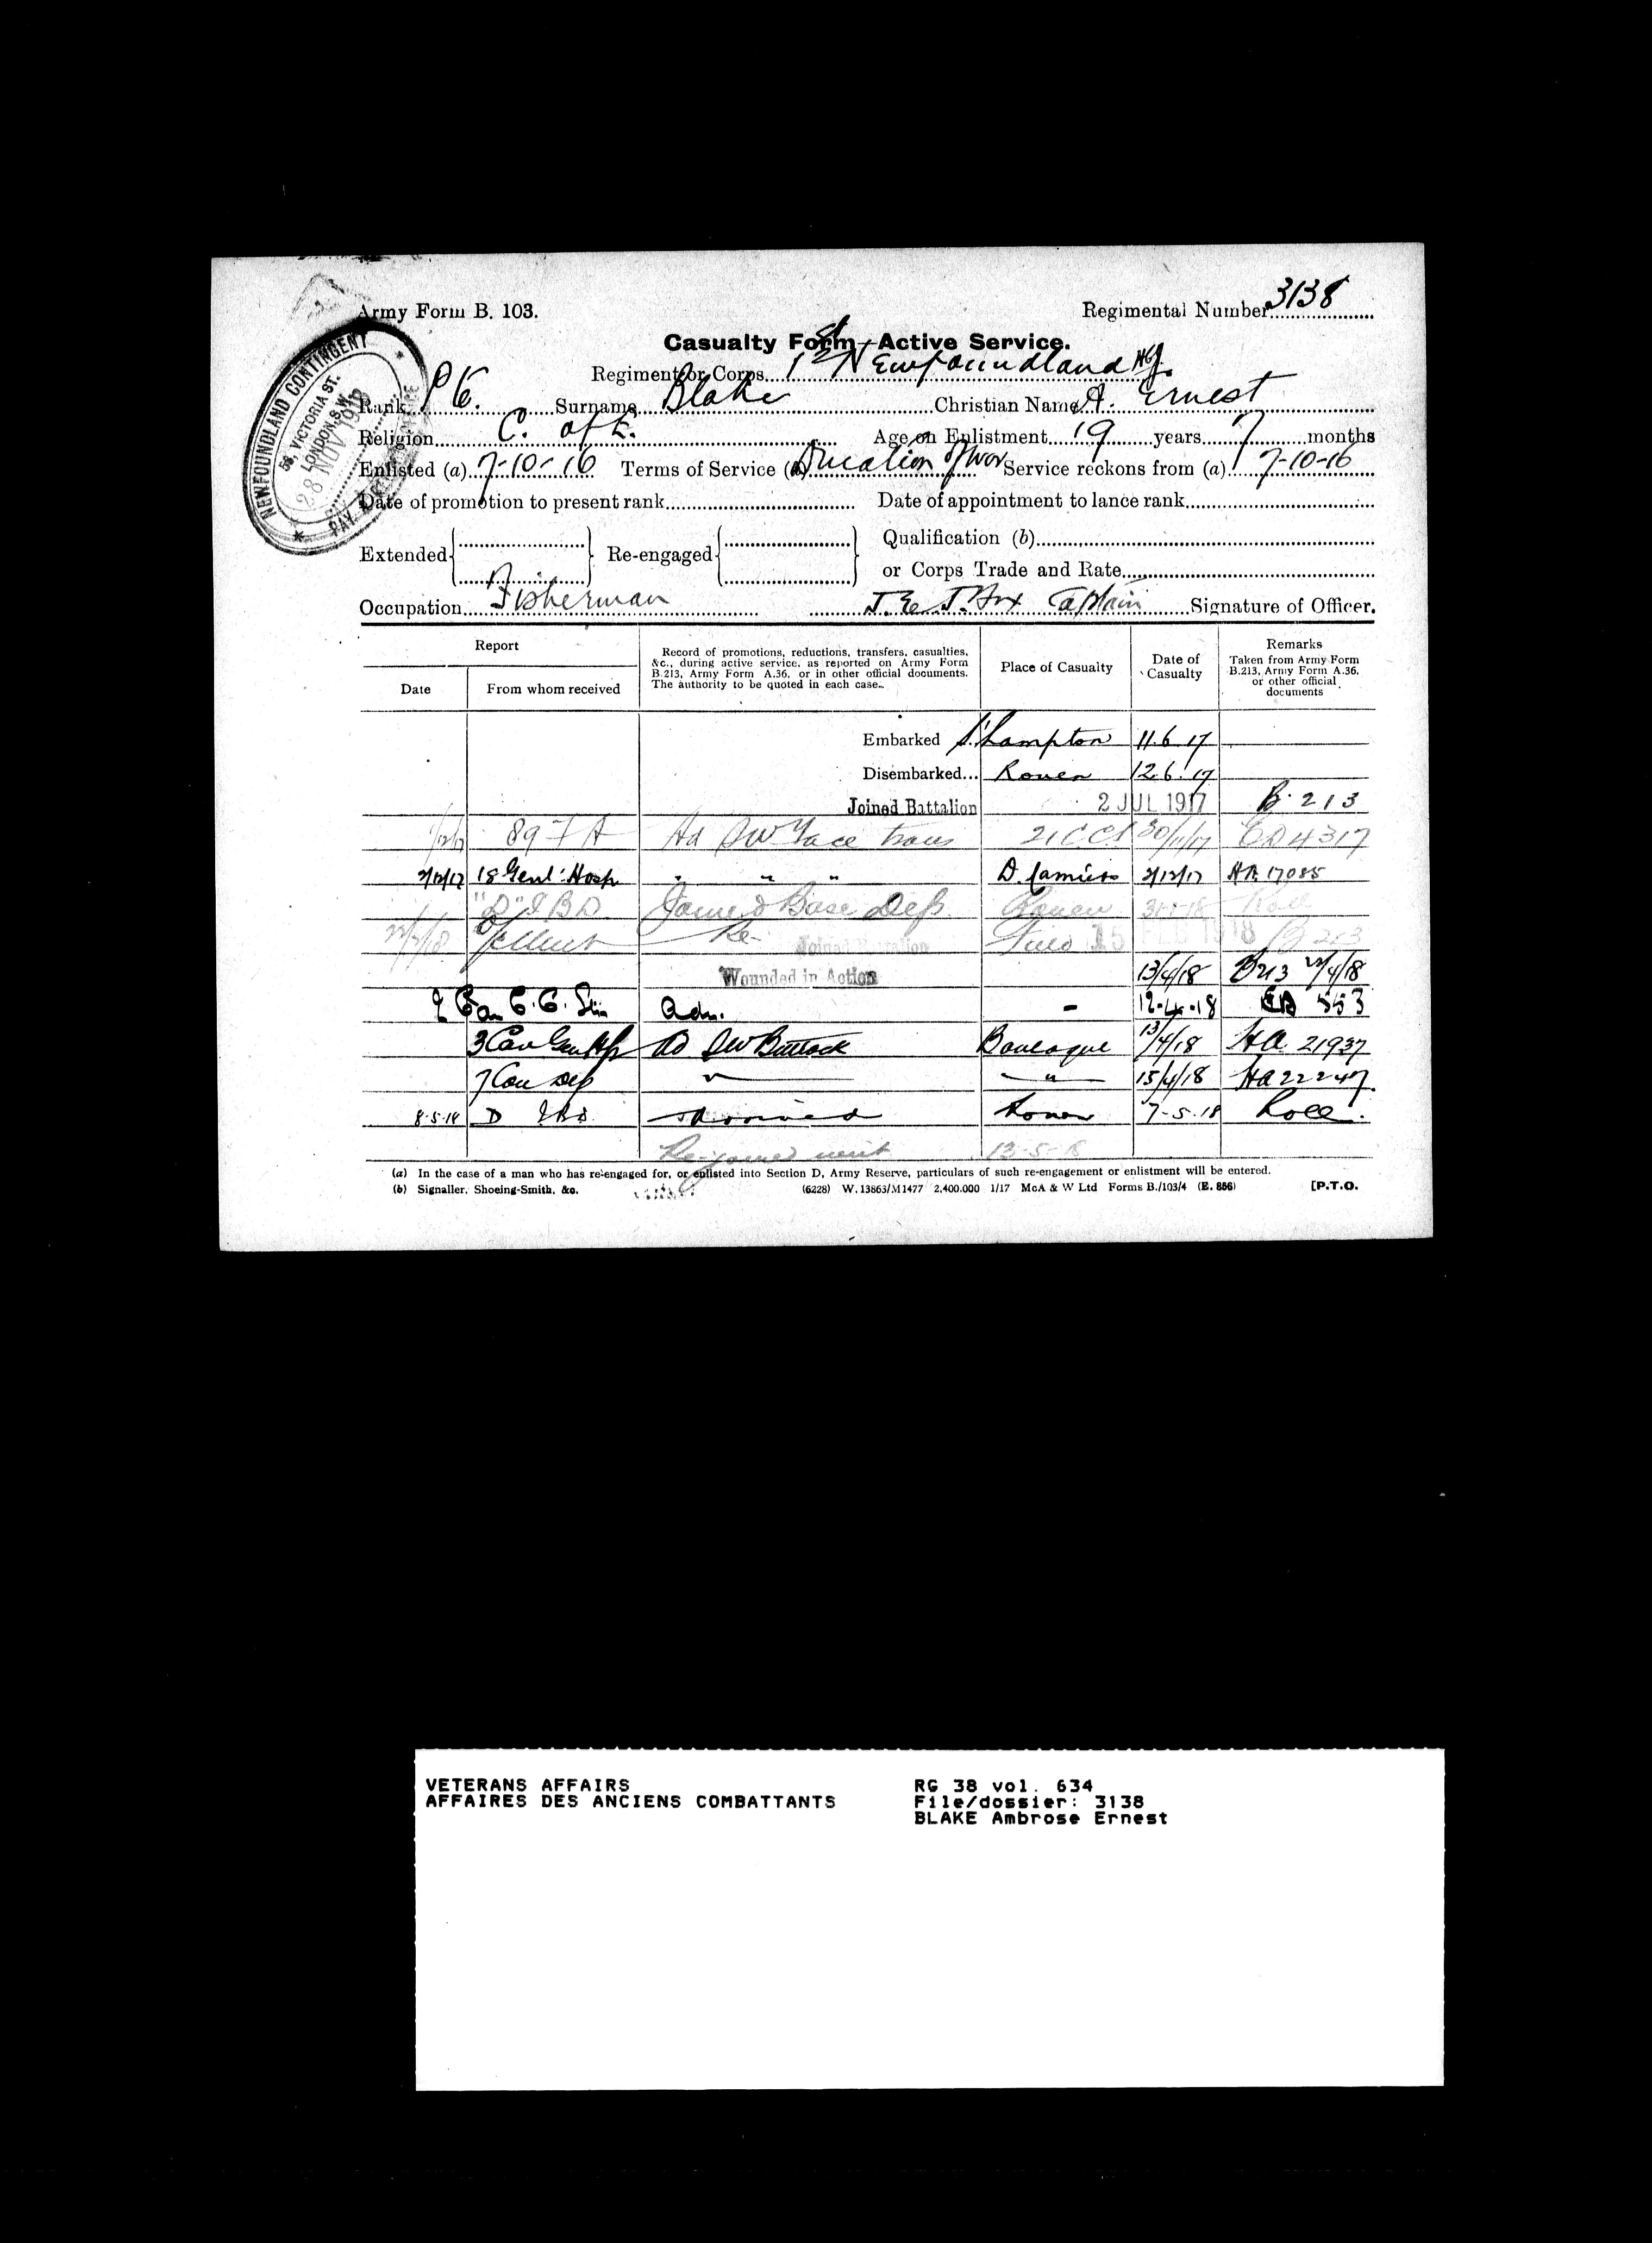 Army Form B. 103.
Regimental Number 3138
Casualty Form—Active Service.
Regiment or Corps 1st Newfoundland
Rank Pte. Surname Blake Christian Name A. Ernest
Religion C. of E. Age on Enlistment 19 years 7 months
Enlisted (a) 7-10-16 Terms of Service (a) Duration of War Service reckons from (a) 7-10-16
Date of promotion to present rank Date of appointment to lance rank
Extended Re-engaged Qualification (b)
or Corps Trade and Rate
Occupation Fisherman Captain Signature of Officer.
NEWFOUNDLAND CONTINGENT
58, VICTORIA ST.
LONDON, S.W.
28 NOV 1918
Report
Date
From whom received
Record of promotions, reductions, transfers, casualties,
&c., during active service, as reported on Army Form
B.213, Army Form A.36, or in other official documents.
The authority to be quoted in each case.
Place of Casualty
Date of
Casualty
Remarks
Taken from Army Form
B.213, Army Form A.36,
or other official
documents
Embarked S'hampton 11.6.17
Disembarked... Rouen 12.6.17
Joined Battalion 2 JUL 1917 B. 213
1/12/17 89 F A Ad SW Face trans 21 CCS 30/11/17 ED 4317
2/12/17 18 Genl. Hosp " " " D. Camiers 2/12/17 HA 17085
"D" I B D Joined Base Dep Rouen 31-1-18 Roll
Re- Joined Battalion Field 15 FEB 1918 B 213
Wounded in Action 13/4/18 B213
Can C.C. Stn Adm. - 12-4-18 ED 553
3 Can Gen Hp Ad SW Buttock Boulogne 13/4/18 HA 21937
7 Con Dep " 15/4/18 HA 22247
8-5-18 D I.B.D. Arrived Rouen 7-5-18 Roll.
Re-joined unit 13-5-18
(a) In the case of a man who has re-engaged for, or enlisted into Section D, Army Reserve, particulars of such re-engagement or enlistment will be entered.
(b) Signaller, Shoeing-Smith, &c. (6228) W.13863/M1477 2,400,000 1/17 McA & W Ltd Forms B./103/4 (E. 856) [P.T.O.
VETERANS AFFAIRS
AFFAIRES DES ANCIENS COMBATTANTS
RG 38 vol. 634
File/dossier: 3138
BLAKE Ambrose Ernest